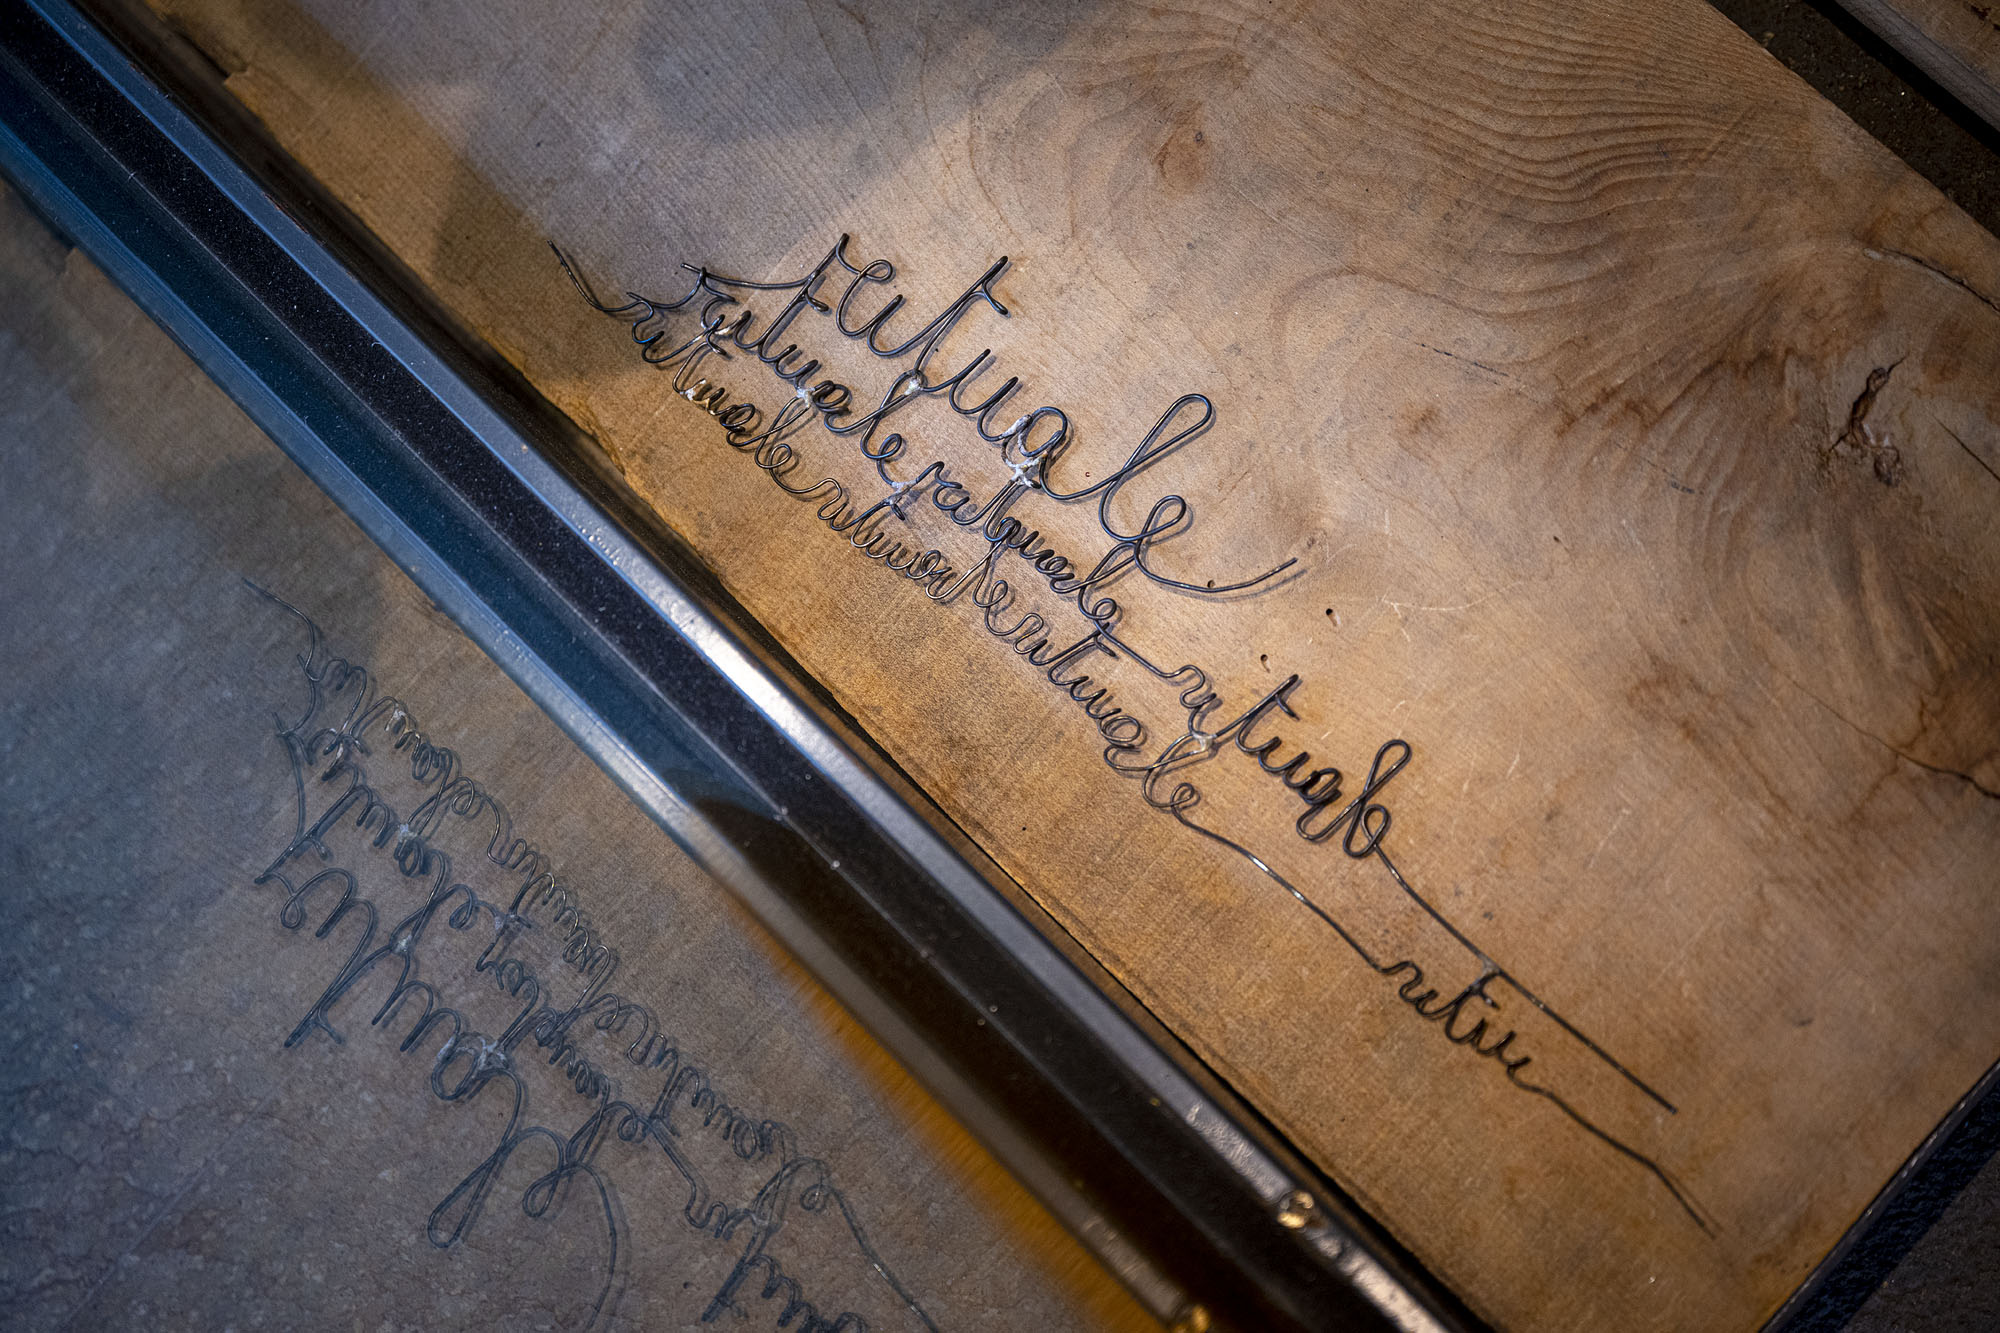 rituale
rituale rituale rituale
rituale rituale rituale ritu